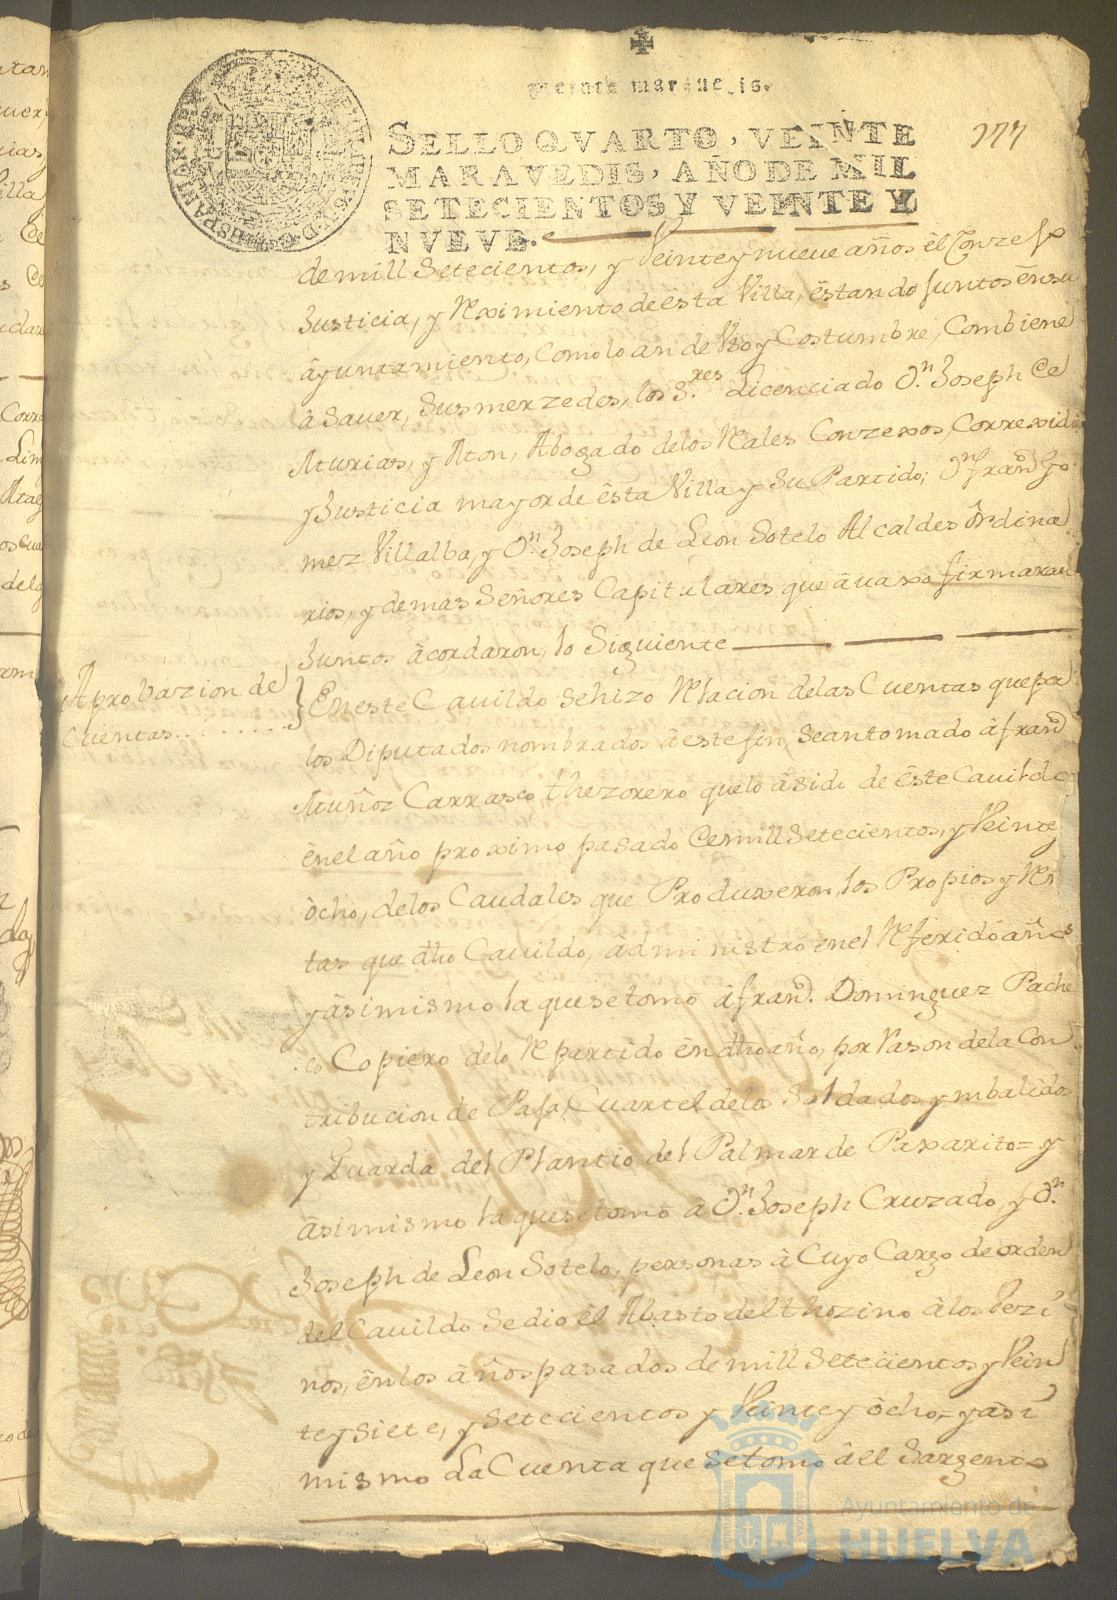 Veinte maravedis.
SELLO QVARTO, VEINTE
MARAVEDIS, AÑO DE MIL
SETECIENTOS Y VEINTE Y
NVEVE.
177
de mill Setecientos, y Veinte y nueve años èl Conzejo
Justicia, y Reximiento de èsta Villa, èstando Juntos èn su
àyuntamiento, Como lo an de Vso y Costumbre, Combiene
à Saver, Sus merzedes, los S.res Licenciado Dn. Joseph de
Asturias, y Aton, Abogado de los Reales Conzexos, Correxidor
y Justicia mayor de èsta Villa y Su Partido; Dn. franco Go
mez Villalba, y Dn. Joseph de Leon Sotelo Alcaldes òrdina
rios, y demas Señores Capitulares que àvaxo firmaran
Juntos àcordaron, lo Siguiente
Aprobazion de
Cuentas.........
En este Cavildo se hizo Relacion de las Cuentas que por
los Diputados nombrados à este fin, se an tomado à franco
Muñoz Carrasco thezorero que lo à sido de èste Cavildo
èn el año proximo pasado de mill Setecientos, y Veinte y
òcho, de los Caudales que Produxeron, los Propios y Ren
tas que dho Cavildo, àdministrò en el Referido àño
y àsimismo la que se tomò à franco. Dominguez Pache
co Copiero de lo Repartido èn dho año, por Rason de la Con
tribucion de Paja, Cuartel de los Soldados ymbalidos
y Guarda del Plantio del Palmar de Paxarito = y
àsimismo la que se tomò à Dn. Joseph Cruzado, y Dn.
Joseph de Leon Sotelo, personas à Cuyo Cargo de orden
del Cavildo se dio èl Abasto del thozino à los Vezi
nos, èn los àños pasados de mill Setecientos y Vein
te y siete, y Setecientos y Veinte y òcho = y àsi
mismo La Cuenta que se tomò àel Sargento
Ayuntamiento de
HUELVA